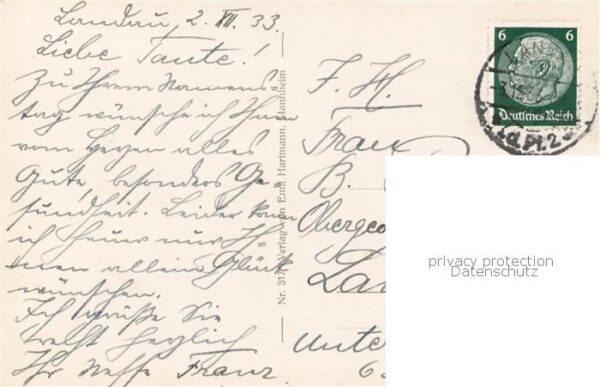 Landau, 2. XII. 33.
Liebe Tante!
Zu Ihrem Namens-
tag wünsche ich Ihnen
vom Herzen alles
Gute, besonders Ge-
sundheit. Leider kann
ich heuer nur Ih-
nen allein Glück
wünschen.
Ich grüße Sie
recht herzlich
Ihr Neffe Franz
Nr. 317 Verlag von Emil Hartmann, Mannheim
6 6
Deutsches Reich
LAN
(Pf. 2
F. H.
B.
Oberge
La
Unte
6
privacy protection
Datenschutz